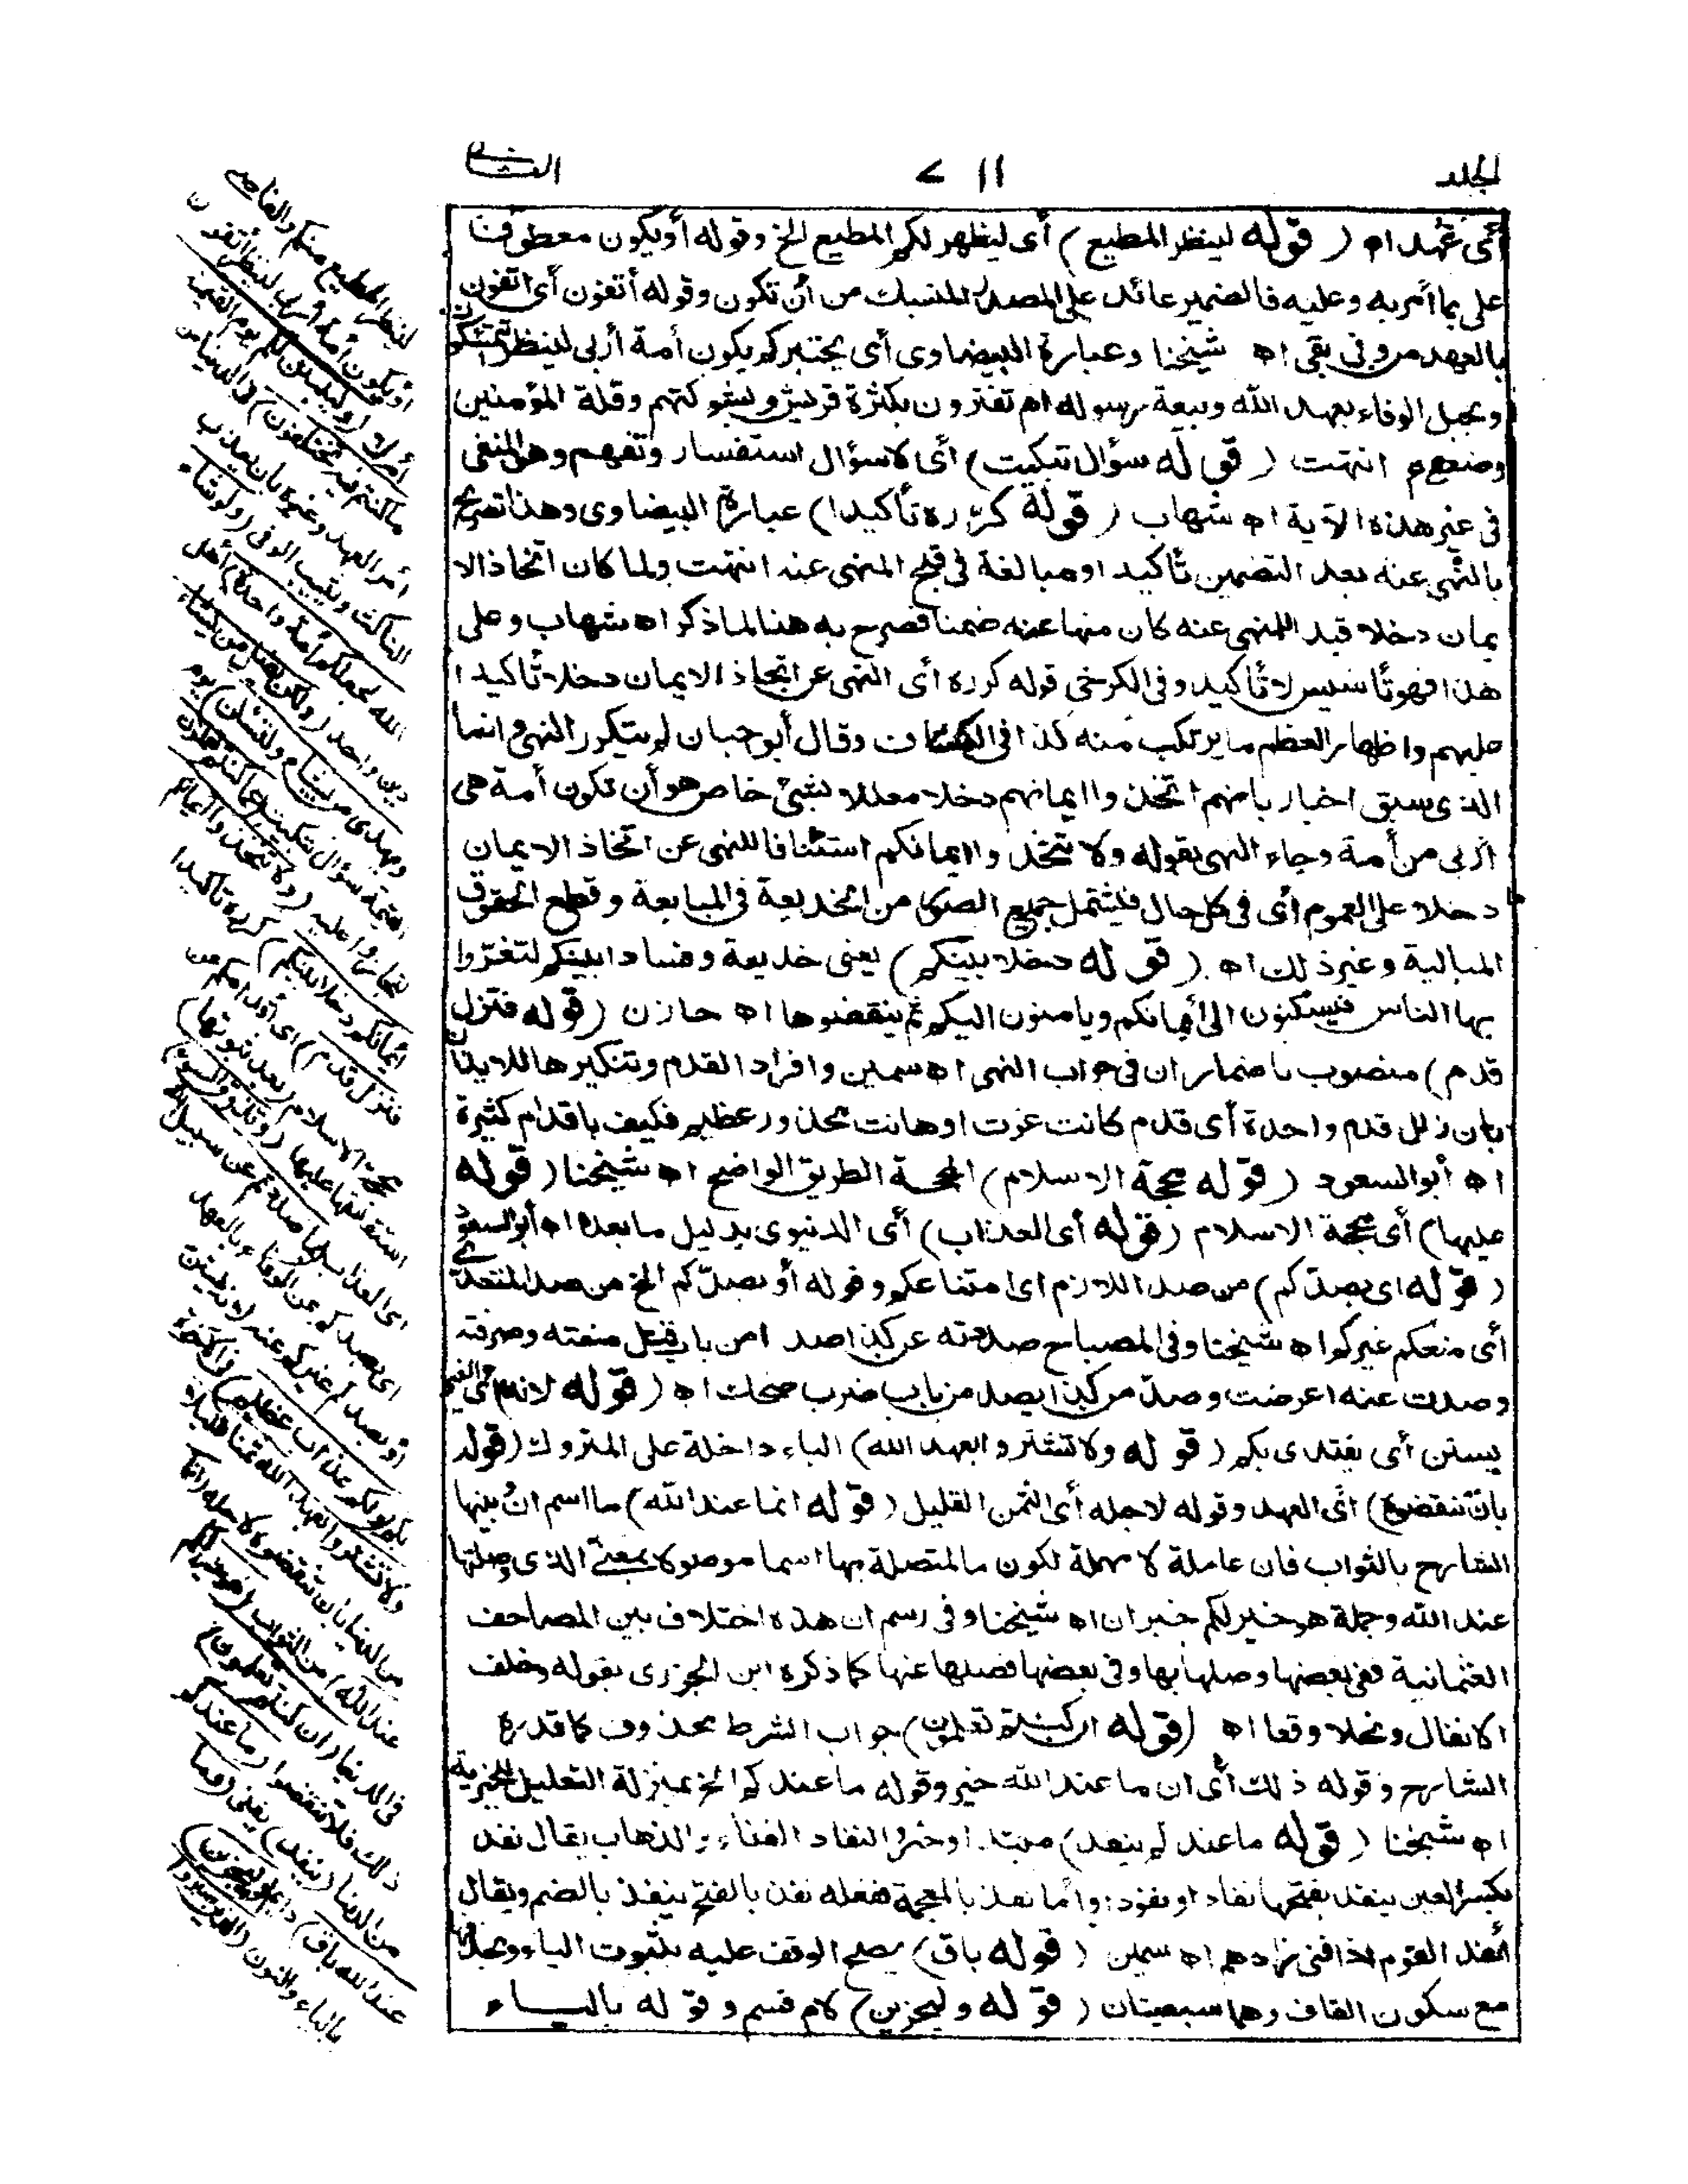 الجلد ٧١١ الثاني
أي عهد اه (قوله لينظر المطيع) أي ليظهر لكم المطيع الخ وقوله أو يكون معطوف
على بما أمر به وعليه فالضمير عائد على المصدر المنسبك من أن تكون وقوله أتفون أي اتفون
بالعهد من وفى يفي اه شيخنا وعبارة البيضاوى أى يختبركم بكون أمة أربى لينظر أتتمسكون
بحبل الوفاء بعهد الله وبيعة رسوله ام تغترون بكثرة قريش وشوكتهم وقلة المؤمنين
وضعفهم انتهت (قوله سؤال تبكيت) أى لاسؤال استفسار وتفهم وهو المنفى
فى غير هذه الآية اه شهاب (قوله كرّره تأكيدا) عبارة البيضاوى وهذا تصريح
بالنهى عنه بعد التضمين تأكيدا ومبالغة فى قبح المنهى عنه انتهت ولما كان اتخاذ الا
يمان دخلا قيد اللمنهى عنه كان منهيا عنه ضمنا فصرح به هنا لما ذكر اه شهاب وعلى
هذا فهو تأسيس لا تأكيد وفى الكرخى قوله كرره أى النهى عن اتخاذ الايمان دخلا تأكيدا
عليهم واظهار العظم ما يرتكب منه كذا فى الكشاف وقال أبو حيان لم يتكرر النهى وانما
الذى سبق اخبار بانهم اتخذوا ايمانهم دخلا معللا بشئ خاص هو أن تكون أمة هى
أربى من أمة وجاء النهى بقوله ولا تتخذوا ايمانكم استئنافا للنهى عن اتخاذ الايمان
دخلا على العموم أى فى كل حال فيشتمل جميع الصور من الخديعة فى المبايعة وقطع الحقوق
المالية وغير ذلك اه (قوله دخلا بينكم) يعنى خديعة وفسادا بينكم لتغرّوا
بها الناس فيسكنون الى أيمانكم ويامنون اليكم ثم ينقضوها اه خازن (قوله فتزل
قدم) منصوب باضمار ان فى جواب النهى اه سمين وافراد القدم وتنكيرها للايذان
بان زلل قدم واحدة أى قدم كانت عزت او هانت محذور عظيم فكيف باقدام كثيرة
اه أبو السعود (قوله محجة الاسلام) المحجة الطريق الواضح اه شيخنا (قوله
عليها) أى محجة الاسلام (قوله أى العذاب) أى الدنيوى بدليل ما بعده اه أبو السعود
(قوله اى بصدّكم) من صد اللازم اى امتناعكم وقوله أو بصدّكم الخ من صد المتعدى
أى منعكم غيركم اه شيخنا وفى المصباح صددته عن كذا صدا من باب قتل منعته وصرفته
وصددت عنه اعرضت وصدّ من كذا يصد من باب ضرب ضحك اه (قوله لانه) أى الغير
يستن أى يقتدى بكم (قوله ولا تشتروا بعهد الله) الباء داخلة على المتروك (قوله
بان تنقضوه) أى العهد وقوله لاجله أى الثمن القليل (قوله انما عند الله) ما اسم ان بينها
الشارح بالثواب فان عاملة لا مهملة لكون ما المتصلة بها اسما موصولا بمعنى الذى وصلتها
عند الله وجملة هو خير لكم خبر ان اه شيخنا وفى رسم ان هذه اختلاف بين المصاحف
العثمانية ففى بعضها وصلها بها وفى بعضها فصلها عنها كما ذكره ابن الجزرى بقوله وخلف
الانفال ونحلا وقعا اه (قوله ان كنتم تعلمون) جواب الشرط محذوف كما قدره
الشارح وقوله ذلك أى ان ما عند الله خير وقوله ما عندكم الخ بمنزلة التعليل للخيرية
اه شيخنا (قوله ما عندكم ينفد) مبتدا وخبر والنفاد الفناء والذهاب يقال نفد
بكسر العين ينفد بفتحها نفادا ونفودا وأما نفذ بالمعجمة ففعله نفذ بالفتح ينفذ بالضم ويقال
أنفد القوم اذا فنى زادهم اه سمين (قوله باق) يصح الوقف عليه بثبوت الياء وبحذفها
مع سكون القاف وهما سبعيتان (قوله وليجزين) لام قسم وقوله باليـــاء
لينظر المطيع منكم والعاصي
أو يكون أمة أربى لينظر أتفون
أم لا (وليبينن لكم يوم القيمة
ما كنتم فيه تختلفون) فى الدنيا من
أمر العهد وغيره بان يعذب
الناكث ويثيب الوفى (ولو شاء
الله لجعلكم أمة واحدة) أهل
دين واحد (ولكن يضل من يشاء
ويهدى من يشاء ولتسئلن) يوم
القيمة سؤال تبكيت (عما كنتم تعملون)
لتجازوا عليه (ولا تتخذوا
ايمانكم دخلا بينكم) كرره تأكيدا
(فتزل قدم) أى أقدامكم عن
محجة الاسلام (بعد ثبوتها)
استقامتها عليها (وتذوقوا السوء)
اى العذاب (بما صددتم عن سبيل الله)
اى بصدكم عن الوفاء بالعهد
أو بصدكم غيركم عنه لانه يستن
بكم (ولكم عذاب عظيم) فى الآخرة
(ولا تشتروا بعهد الله ثمنا قليلا)
من الدنيا بان تنقضوه لاجله (انما
عند الله) من الثواب (هو خير لكم)
مما فى الدنيا (ان كنتم تعلمون)
ذلك فلا تنقضوا (ما عندكم)
من الدنيا (ينفد) يفنى (وما
عند الله باق) دائم (وليجزين)
بالياء والنون (الذين صبروا)